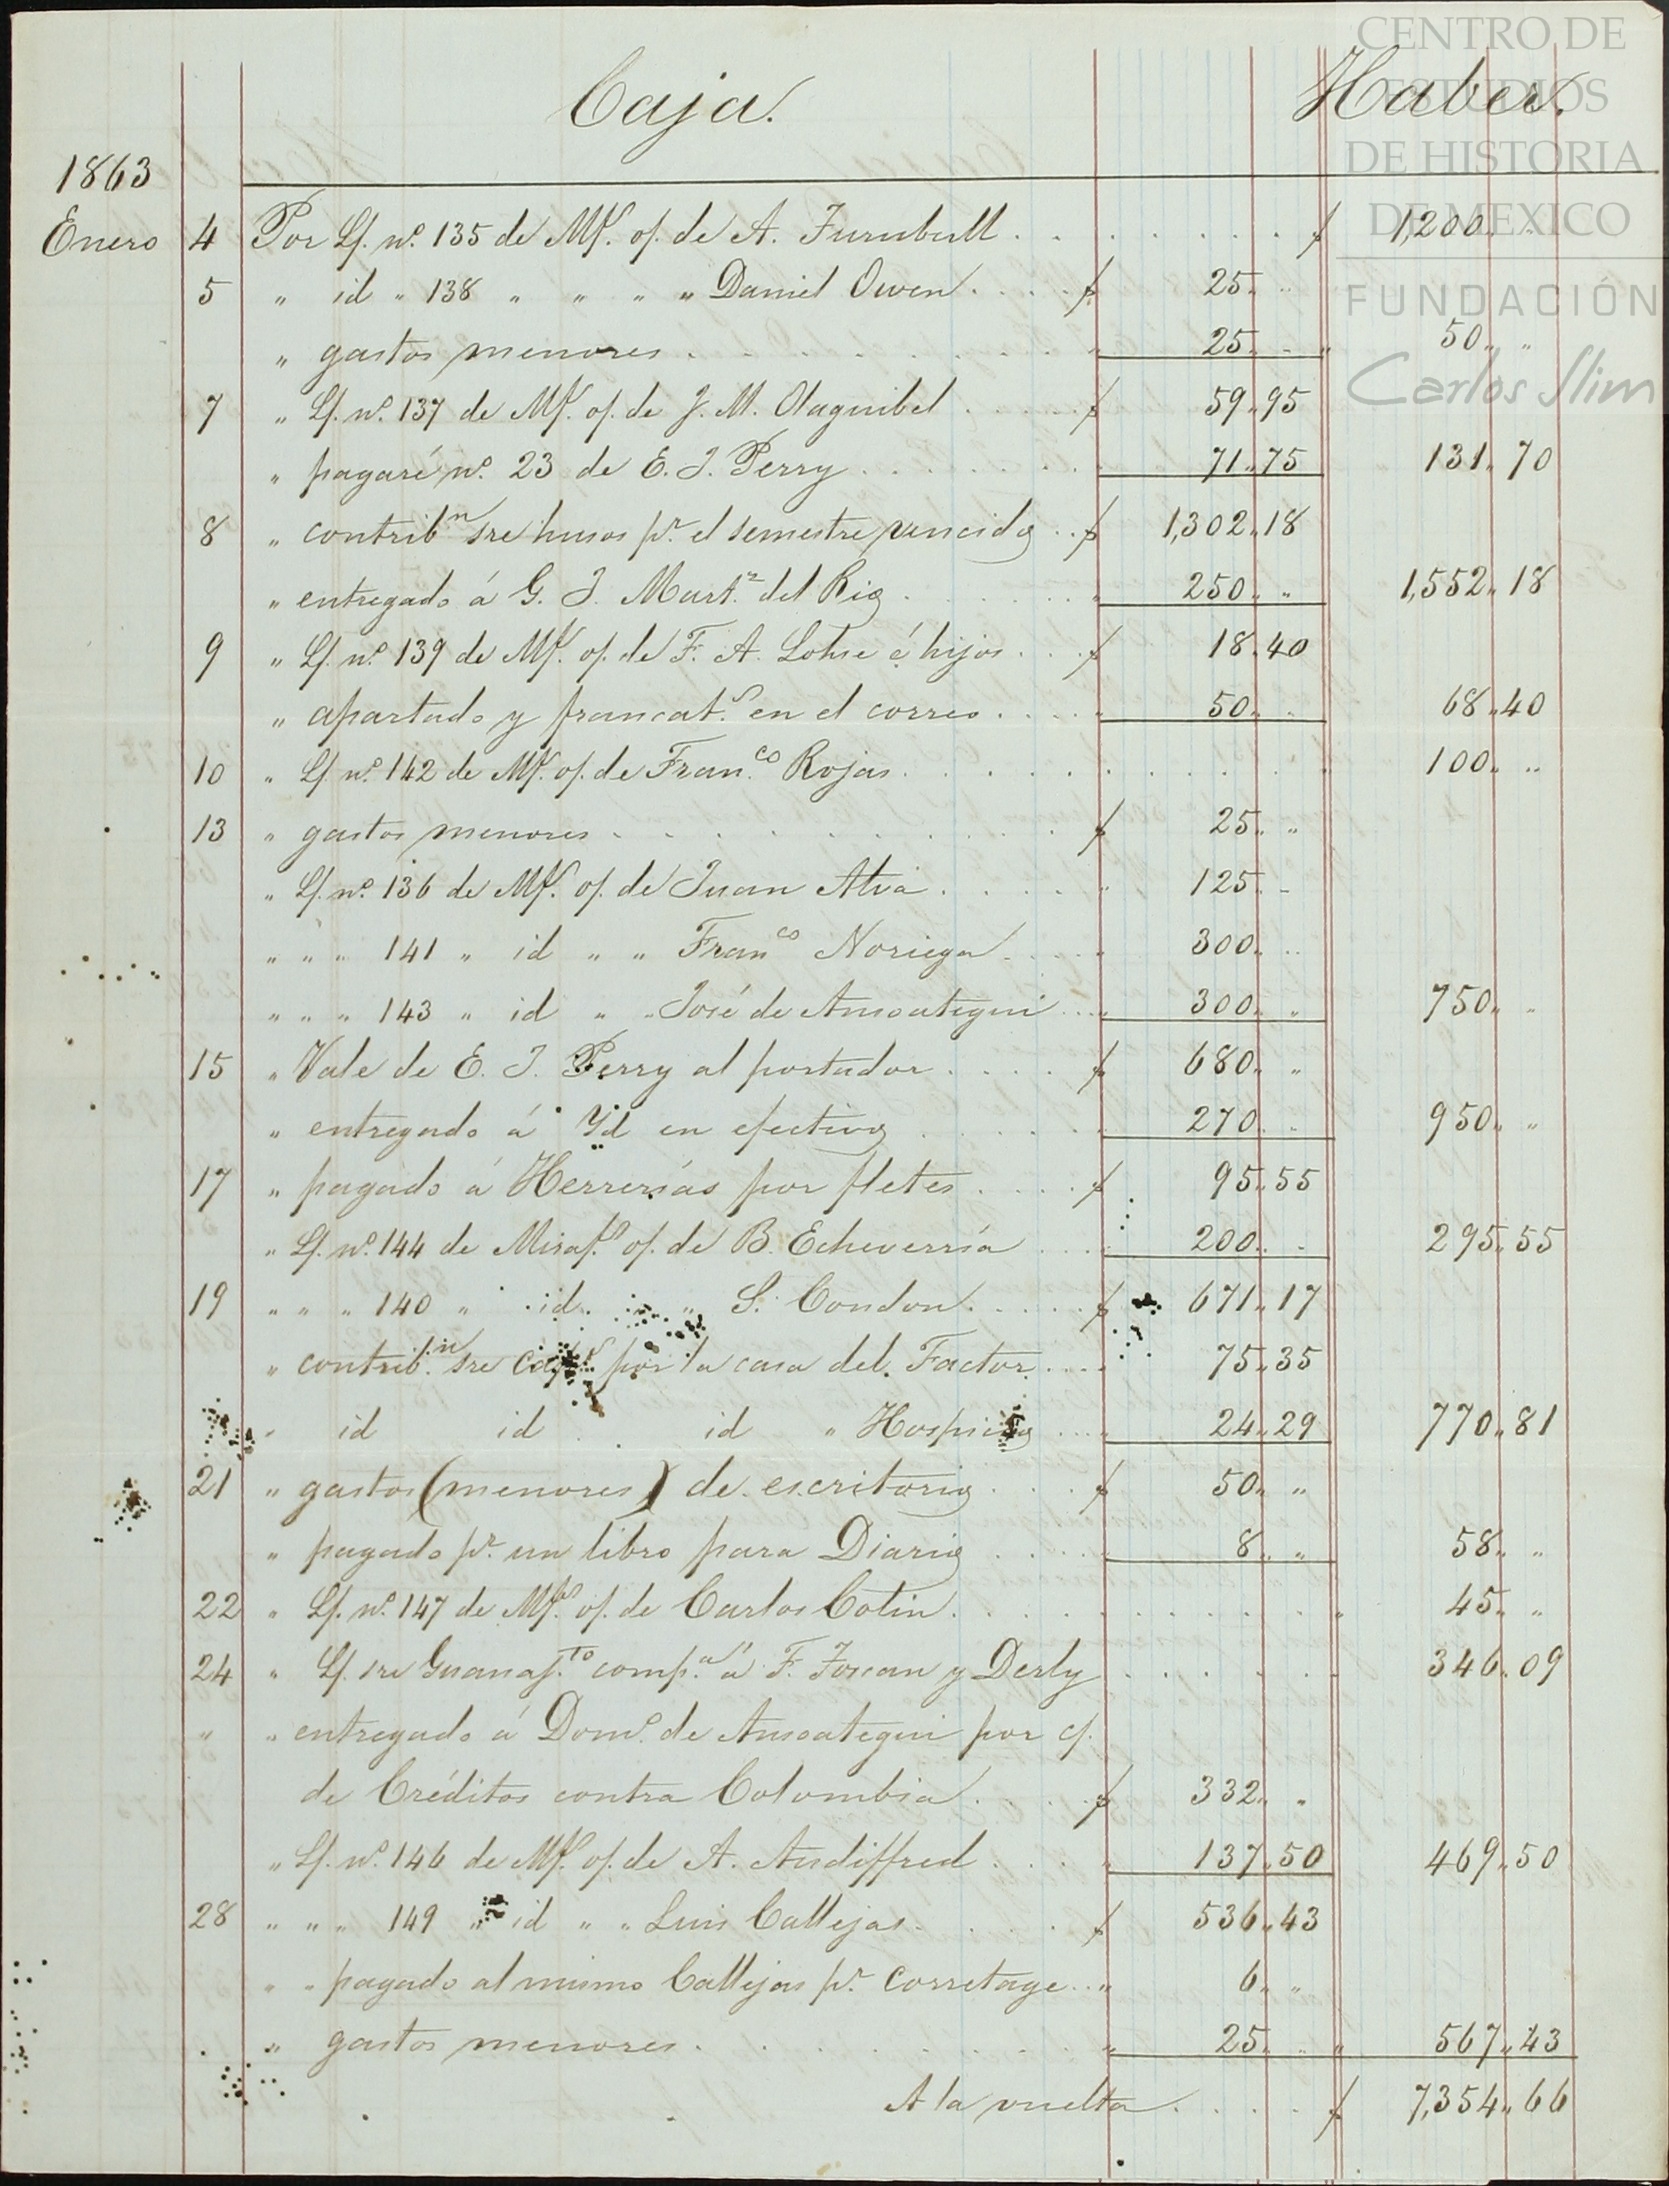 CENTRO DE
ESTUDIOS
DE HISTORIA
DE MEXICO
FUNDACIÓN
Carlos Slim
Caja. Haber.
1863
Enero 4 Por Lf. nº. 135 de Mf. of. de A. Turnbull . . . . . . . $ 1,200 " "
5 " id " 138 " " " " Daniel Owen . . . . $ 25 " "
" gastos menores . . . . . . . " 25 " " " 50 " "
7 " Lf. nº. 137 de Mf. of. de J. M. Olaguibel . . . . $ 59 " 95
" pagaré nº. 23 de E. J. Perry . . . . . . . " 71 " 75 131 " 70
8 " contribⁿ sre husos pr. el semestre vencido . . $ 1,302 " 18
" entregado á G. J. Mart.z del Rio . . . . . . " 250 " " 1,552 " 18
9 " Lf. nº. 139 de Mf. of. de F. A. Lohse é hijos . . . $ 18 " 40
" apartado y francat.º en el correo . . . . " 50 " " 68 " 40
10 " Lf. nº. 142 de Mf. of. de Fran.co Rojas . . . . . . . 100 " "
13 " gastos menores . . . . . . . . $ 25 " "
" Lf. nº. 136 de Mf. of. de Juan Alva . . . . " 125 " "
" " " 141 " id " " Franco Noriega . . . . " 300 " "
" " " 143 " id " " José de Ansoategui . . . " 300 " " 750 " "
15 " Vale de E. J. Perry al portador . . . . $ 680 " "
" entregado á Yd en efectivo . . . . . . " 270 " " 950 " "
17 " pagado á Herrerías por fletes . . . . $ 95 " 55
" Lf. nº. 144 de Miraf.s of. de B. Echeverría . . . " 200 " " 295 " 55
19 " " " 140 " id. " " S. Condon . . . . . $ 671 " 17
" contrib.n sre por la casa del Factor . . . . 75 " 35
" id id id " Hospicio . . . " 24 " 29 770 " 81
21 " gastos (menores) de escritorio . . . . $ 50 " "
" pagado pr. un libro para Diario . . . . " 8 " " 58 " "
22 " Lf. nº. 147 de Mf.s of. de Carlos Cotin . . . . . . . " 45 " "
24 " Lf. sre Guanaj.to comp.a á F. y Derly . . . . . . 346 " 09
" " entregado á Domº. de Ansoategui por cf.
de Créditos contra Colombia . . . . $ 332 " "
" Lf. nº. 146 de Mf. of. de A. Audiffred . . . " 137 " 50 469 " 50
28 " " " 149 " id " " Luis Callejas . . . . . $ 536 " 43
" " pagado al mismo Callejas pr. corretage . . " 6 " "
" gastos menores . . . . . . . " 25 " " " 567 " 43
A la vuelta . . . . $ 7,354 " 66